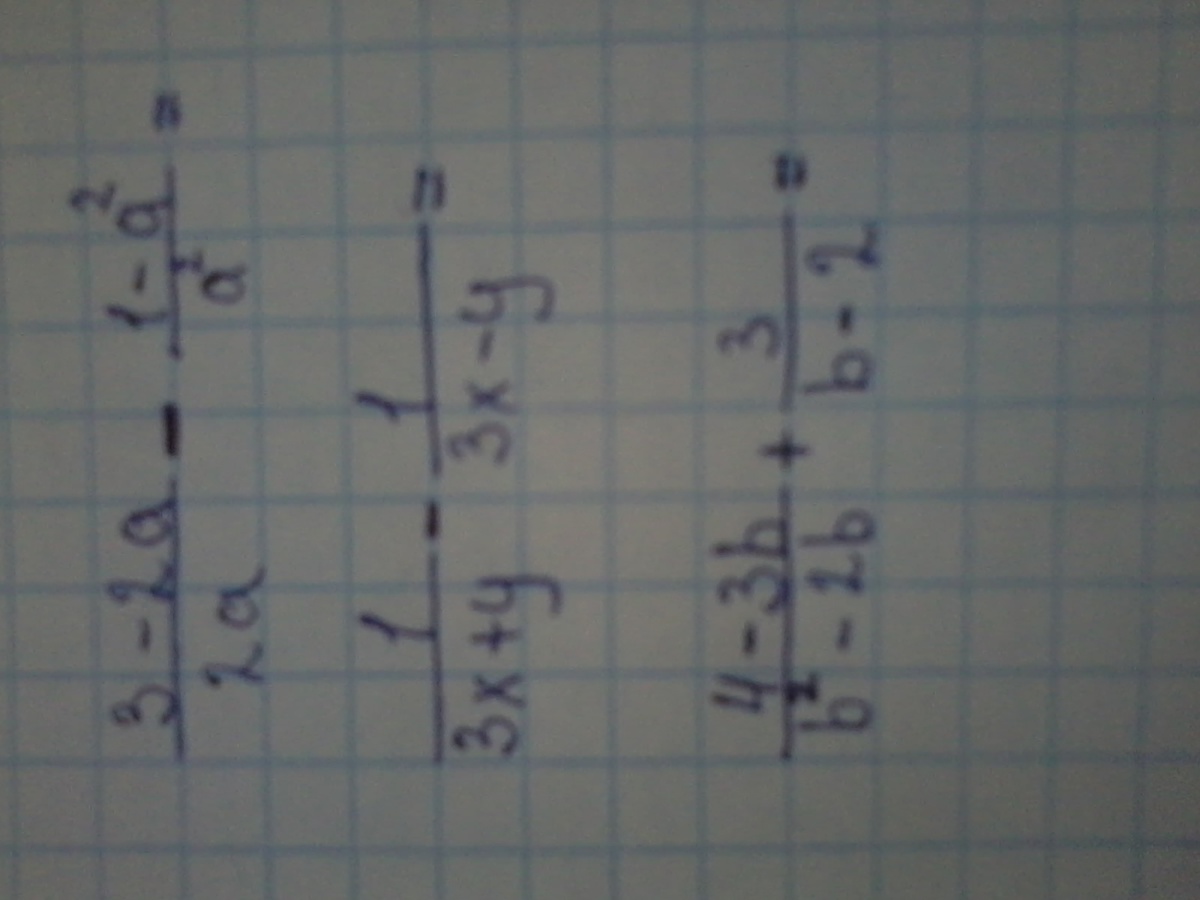 (3 - 2a)/(2a) - (1 - a²)/(a²) =
1/(3x + y) - 1/(3x - y) =
(4 - 3b)/(b² - 2b) + 3/(b - 2) =